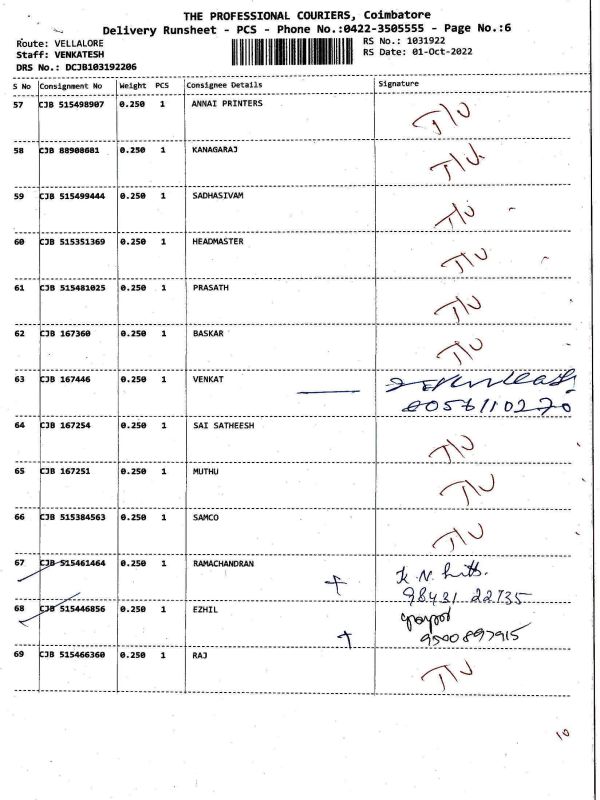 THE PROFESSIONAL COURIERS, Coimbatore
Delivery Runsheet - PCS - Phone No.:0422-3505555 - Page No.:6
Route: VELLALORE RS No.: 1031922
Staff: VENKATESH RS Date: 01-Oct-2022
DRS No.: DCJB103192206
S No Consignment No Weight PCS Consignee Details Signature
57 CJB 515498907 0.250 1 ANNAI PRINTERS T/U
58 CJB 88908681 0.250 1 KANAGARAJ T/U
59 CJB 515499444 0.250 1 SADHASIVAM T/U
60 CJB 515351369 0.250 1 HEADMASTER T/U
61 CJB 515481025 0.250 1 PRASATH T/U
62 CJB 167360 0.250 1 BASKAR T/U
63 CJB 167446 0.250 1 VENKAT
64 CJB 167254 0.250 1 SAI SATHEESH T/U
65 CJB 167251 0.250 1 MUTHU T/U
66 CJB 515384563 0.250 1 SAMCO T/U
67 CJB 515461464 0.250 1 RAMACHANDRAN K.N.
98431 22735
68 CJB 515446856 0.250 1 EZHIL
9500897915
69 CJB 515466360 0.250 1 RAJ T/U
10